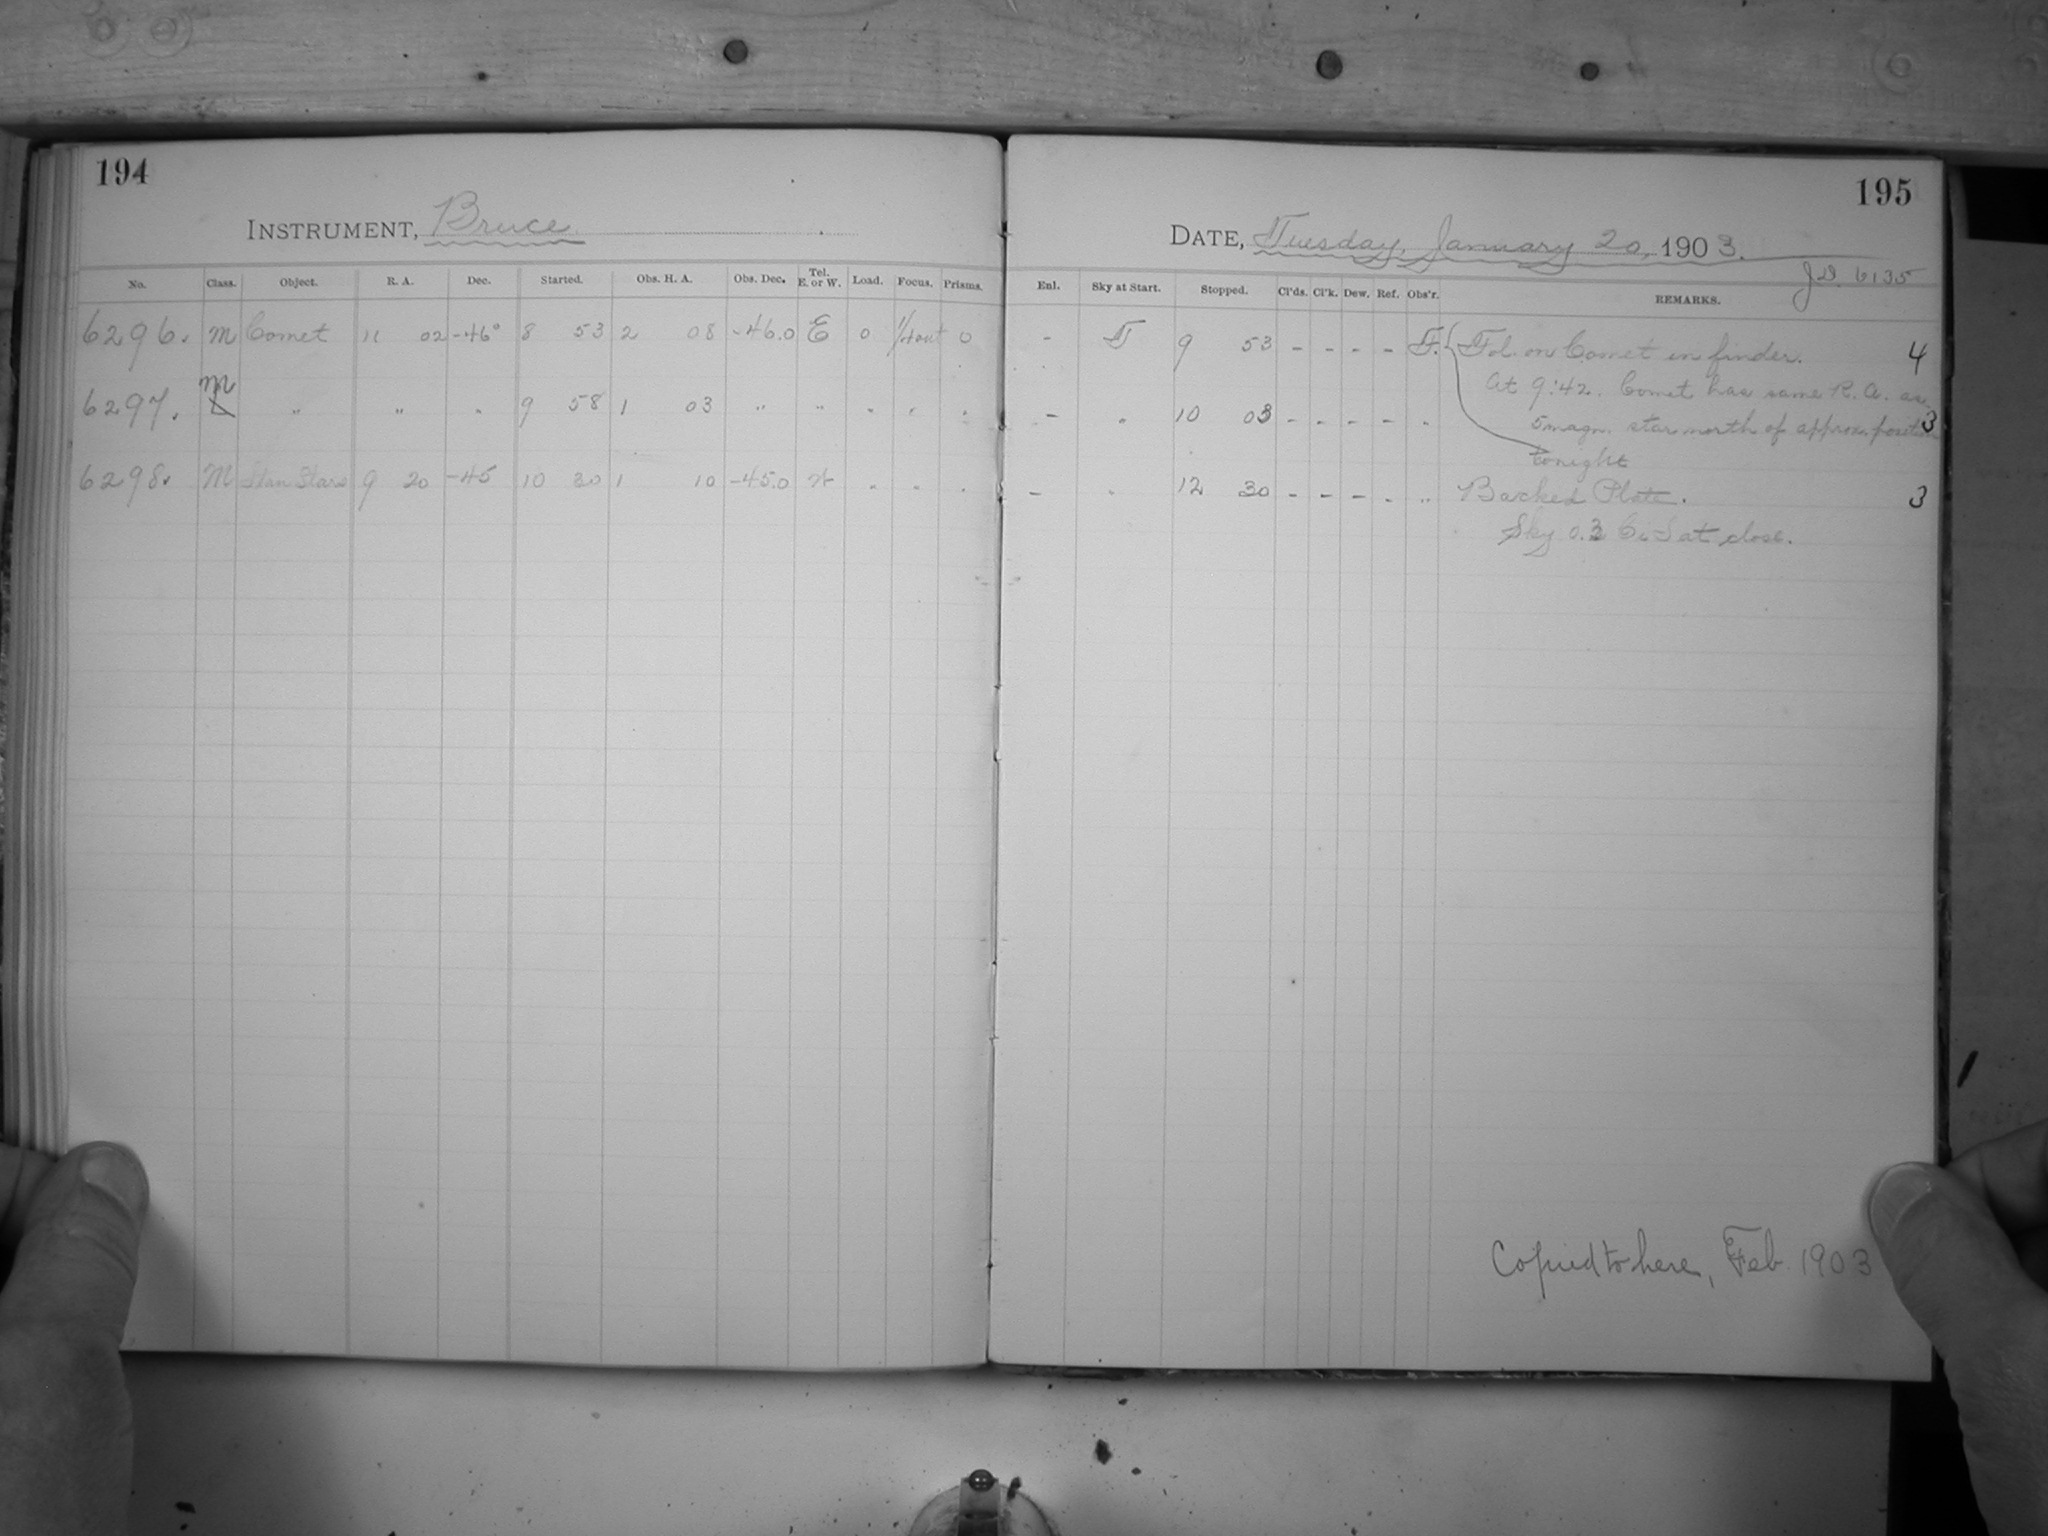 194
INSTRUMENT, Bruce
No. Class. Object. R. A. Dec. Started. Obs. H. A. Obs. Dec. Tel. E. or W. Load. Focus. Prisms.
6296. M Comet 11 02 -46° 8 53 2 08 -46.0 E 0 0
6297. M " " " 9 58 1 03 " " " " "
6298. M Stan Stars 9 20 -45 10 30 1 10 -45.0 " " "
195
DATE, Tuesday, January 20, 1903.
J.D. 6135
Enl. Sky at Start. Stopped. Cl'ds. Cl'k. Dew. Ref. Obs'r. REMARKS.
- 9 53 - - - - F. Fol. on Comet in finder. 4
At 9:42. Comet has same R. A. as
- " 10 03 - - - - " 5 magn. star north of approx. position 3
tonight
- " 12 30 - - - - " Backed Plate. 3
Sky at close.
Copied to here, Feb. 1903